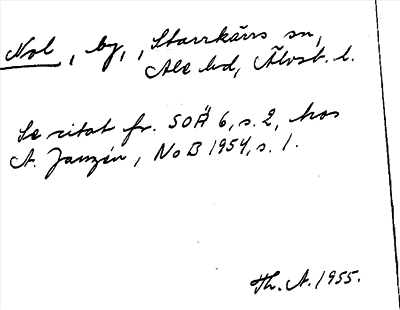 Nol, by, Starrkärrs sn,
Ale hd, Älvsb. l.
Se citat fr. SOÄ 6, s. 2, hos
A. Janzén, NoB 1954, s. 1.
Th. A. 1955.